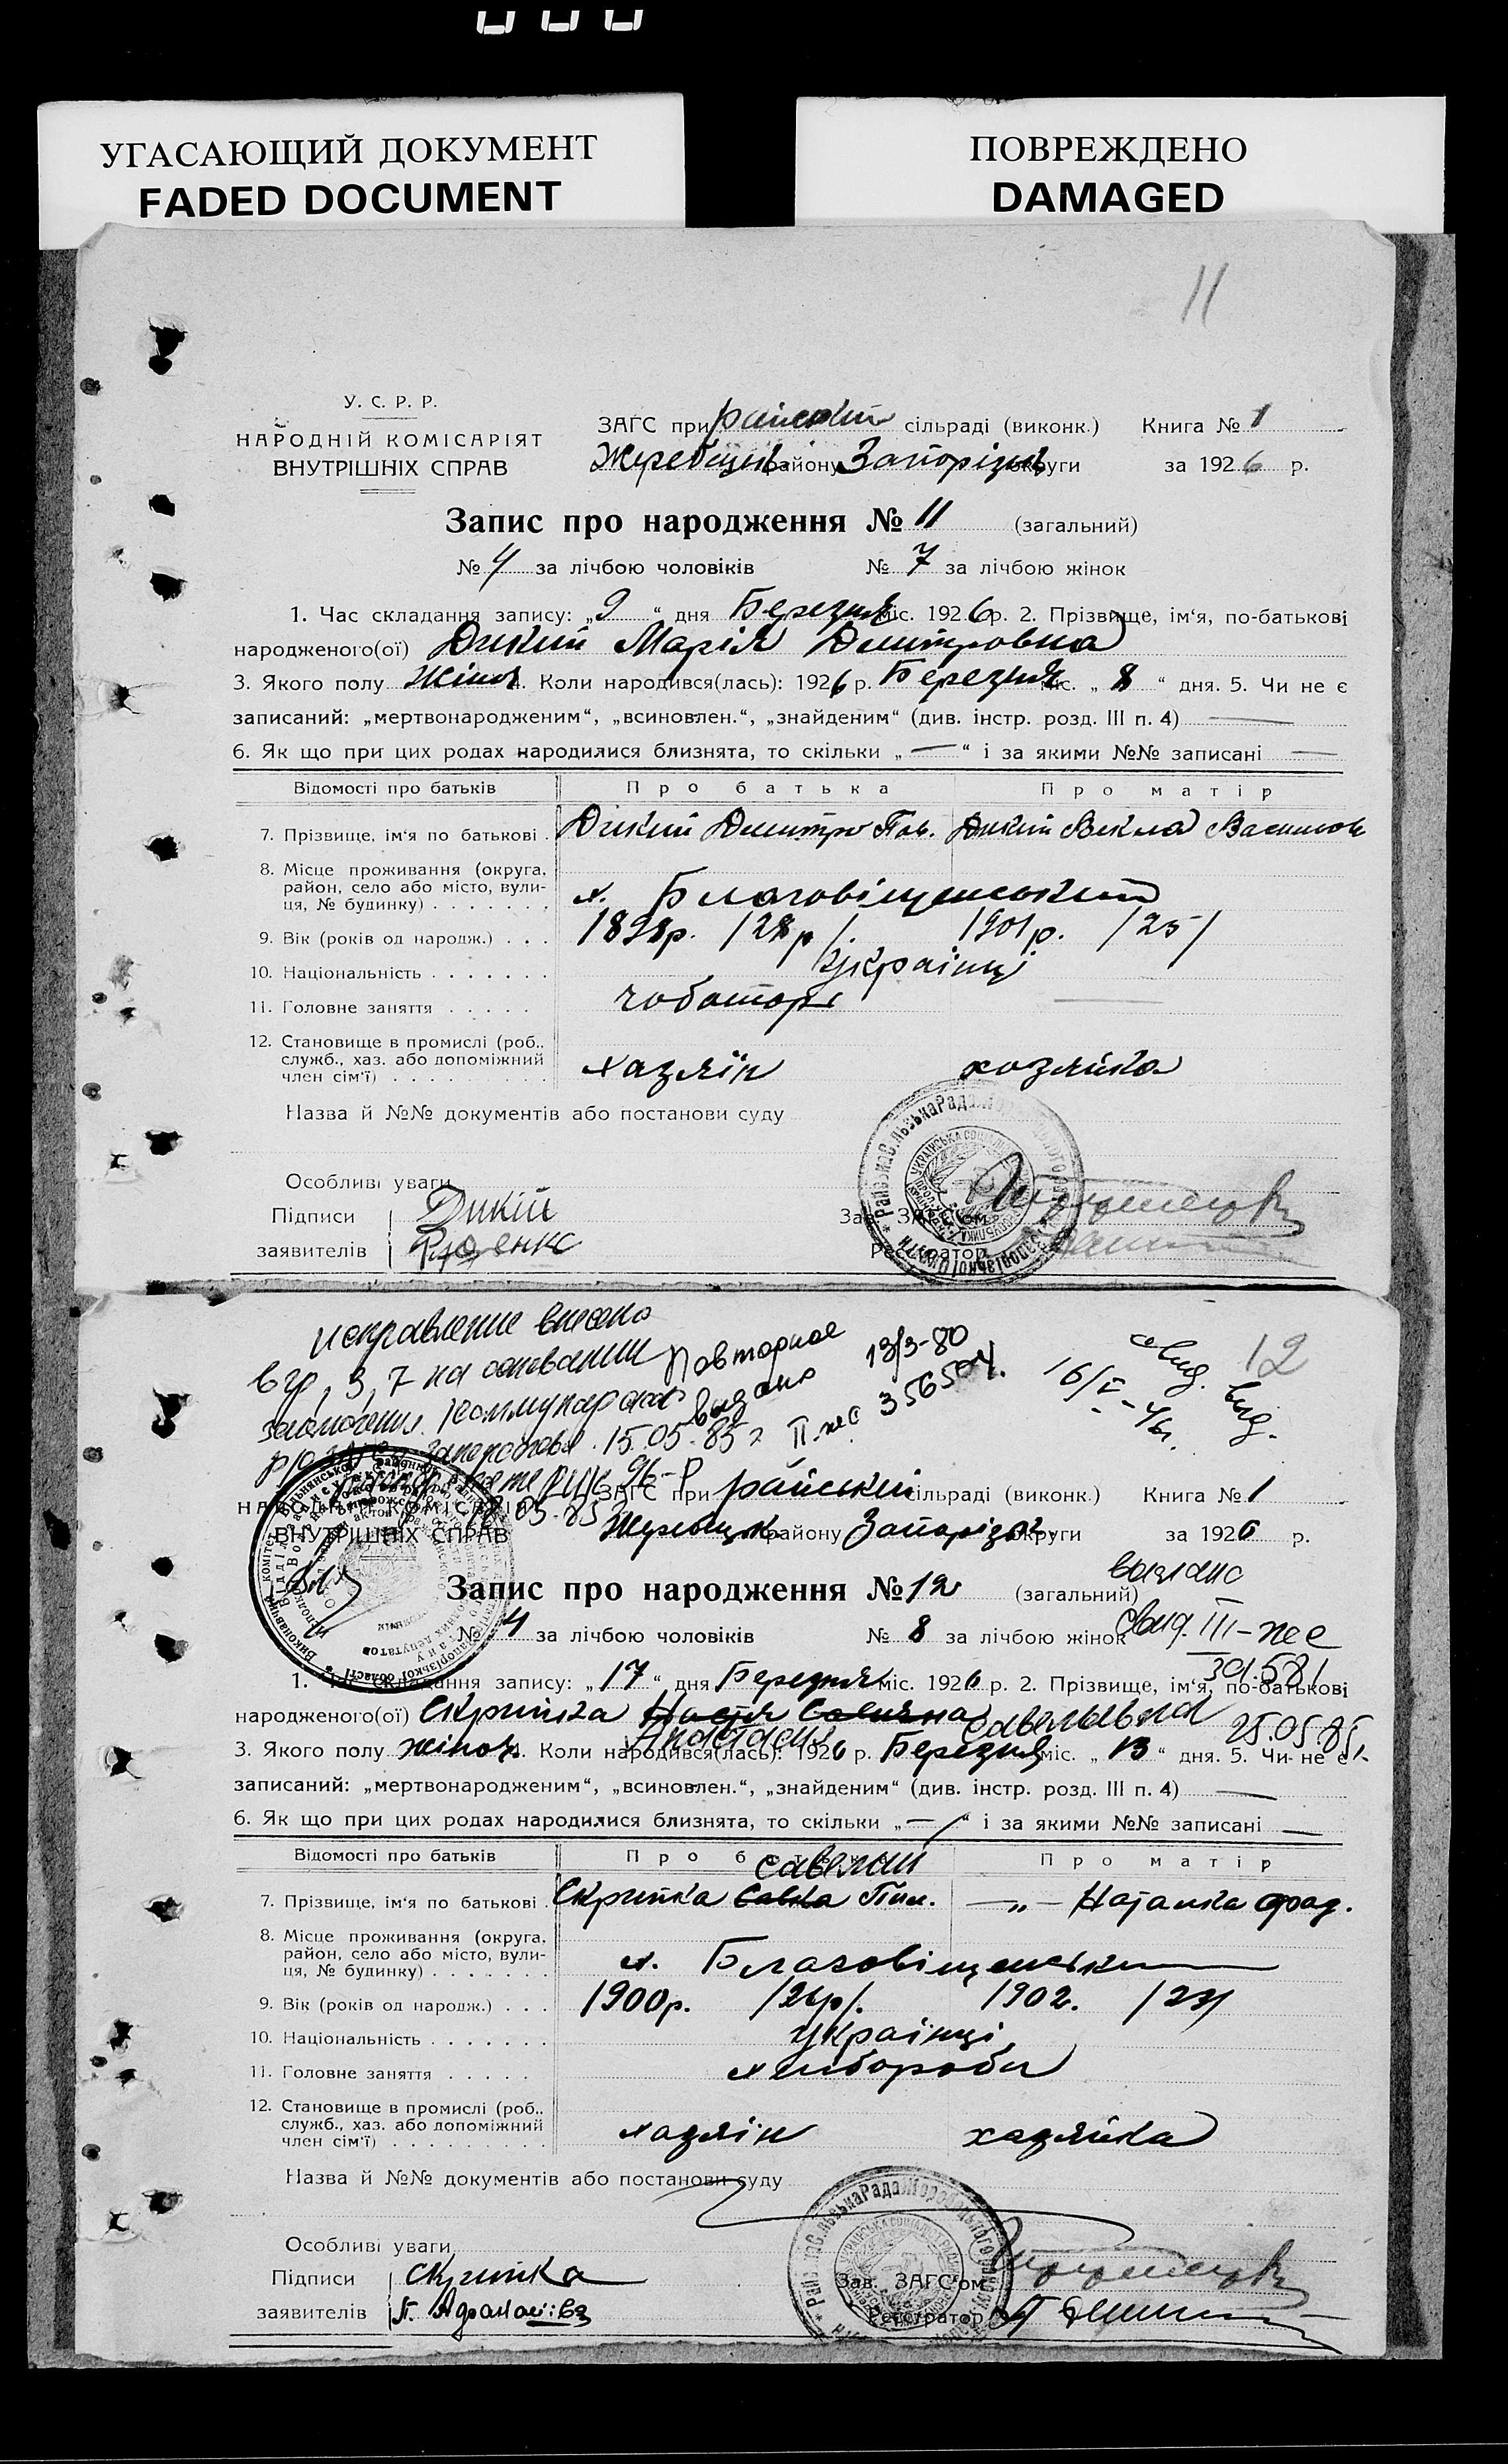 УГАСАЮЩИЙ ДОКУМЕНТ
FADED DOCUMENT
ПОВРЕЖДЕНО
DAMAGED
11
У. С. Р. Р.
НАРОДНІЙ КОМІСАРІЯТ
ВНУТРІШНІХ СПРАВ
ЗАГС при райській сільраді (виконк.) Книга № 1
Жеребецьк району Запорізьк округи за 1926 р.
Запис про народження № 11 (загальний)
№ 4 за лічбою чоловіків № 7 за лічбою жінок
1. Час складання запису: „9“ дня Березня міс. 1926 р. 2. Прізвище, ім‘я, по-батькові
народженого(ої) Дикий Марія Дмитровна
3. Якого полу жіноч. 4. Коли народився(лась): 1926 р. Березня міс. „8“ дня. 5. Чи не є
записаний: „мертвонародженим“, „всиновлен.“, „знайденим“ (див. інстр. розд. III п. 4) —
6. Як що при цих родах народилися близнята, то скільки „—“ і за якими №№ записані —
Відомості про батьків Про батька Про матір
7. Прізвище, ім‘я по батькові Дикий Дмитро Пав. Дикий Векла Васильов
8. Місце проживання (округа, район, село або місто, вули-
ця, № будинку) х. Благовіщенський
9. Вік (років од народж.) 1898р. /28р/. 1901р. /25/
10. Національність Українці
11. Головне заняття чоботарь —
12. Становище в промислі (роб., служб., хаз. або допоміжний
член сім‘ї) хазяїн хозяйка
Назва й №№ документів або постанови суду
Особливі уваги
Підписи Дикій
заявителів
Зав. ЗАГС‘ом
Реєстратор
исправление внесено
в гр. 3, 7 на основании
заключения Коммунарского
15.05.85г
Повторное
выдано 13/3-80
356504.
16/V-41.
свид. выд.
12
НАРОДНІЙ КОМІСАРІЯТ
ВНУТРІШНІХ СПРАВ
ЗАГС при райській сільраді (виконк.) Книга № 1
Жеребецьк. району Запорізьк. округи за 1926 р.
Запис про народження № 12 (загальний)
выдано
свид. III-ЖС
391581
25.05.85г.
№ 4 за лічбою чоловіків № 8 за лічбою жінок
1. Час складання запису: „17“ дня Березня міс. 1926 р. 2. Прізвище, ім‘я, по-батькові
народженого(ої) Скрипка Настя Савична
Анастасия Савельевна
3. Якого полу жіноч. 4. Коли народився(лась): 1926 р. Березня міс. „13“ дня. 5. Чи не є
записаний: „мертвонародженим“, „всиновлен.“, „знайденим“ (див. інстр. розд. III п. 4) —
6. Як що при цих родах народилися близнята, то скільки „—“ і за якими №№ записані —
Відомості про батьків Про батька Про матір
Савелий
7. Прізвище, ім‘я по батькові Скрипка Савка Пим. —„— Наталка Фрад.
8. Місце проживання (округа, район, село або місто, вули-
ця, № будинку) х. Благовіщенськи
9. Вік (років од народж.) 1900р. /26р/. 1902. /23/
10. Національність Українці
11. Головне заняття хлібороби
12. Становище в промислі (роб., служб., хаз. або допоміжний
член сім‘ї) хазяїн хазяйка
Назва й №№ документів або постанови суду
Особливі уваги
Підписи Скрипка
заявителів
Зав. ЗАГС‘ом
Реєстратор